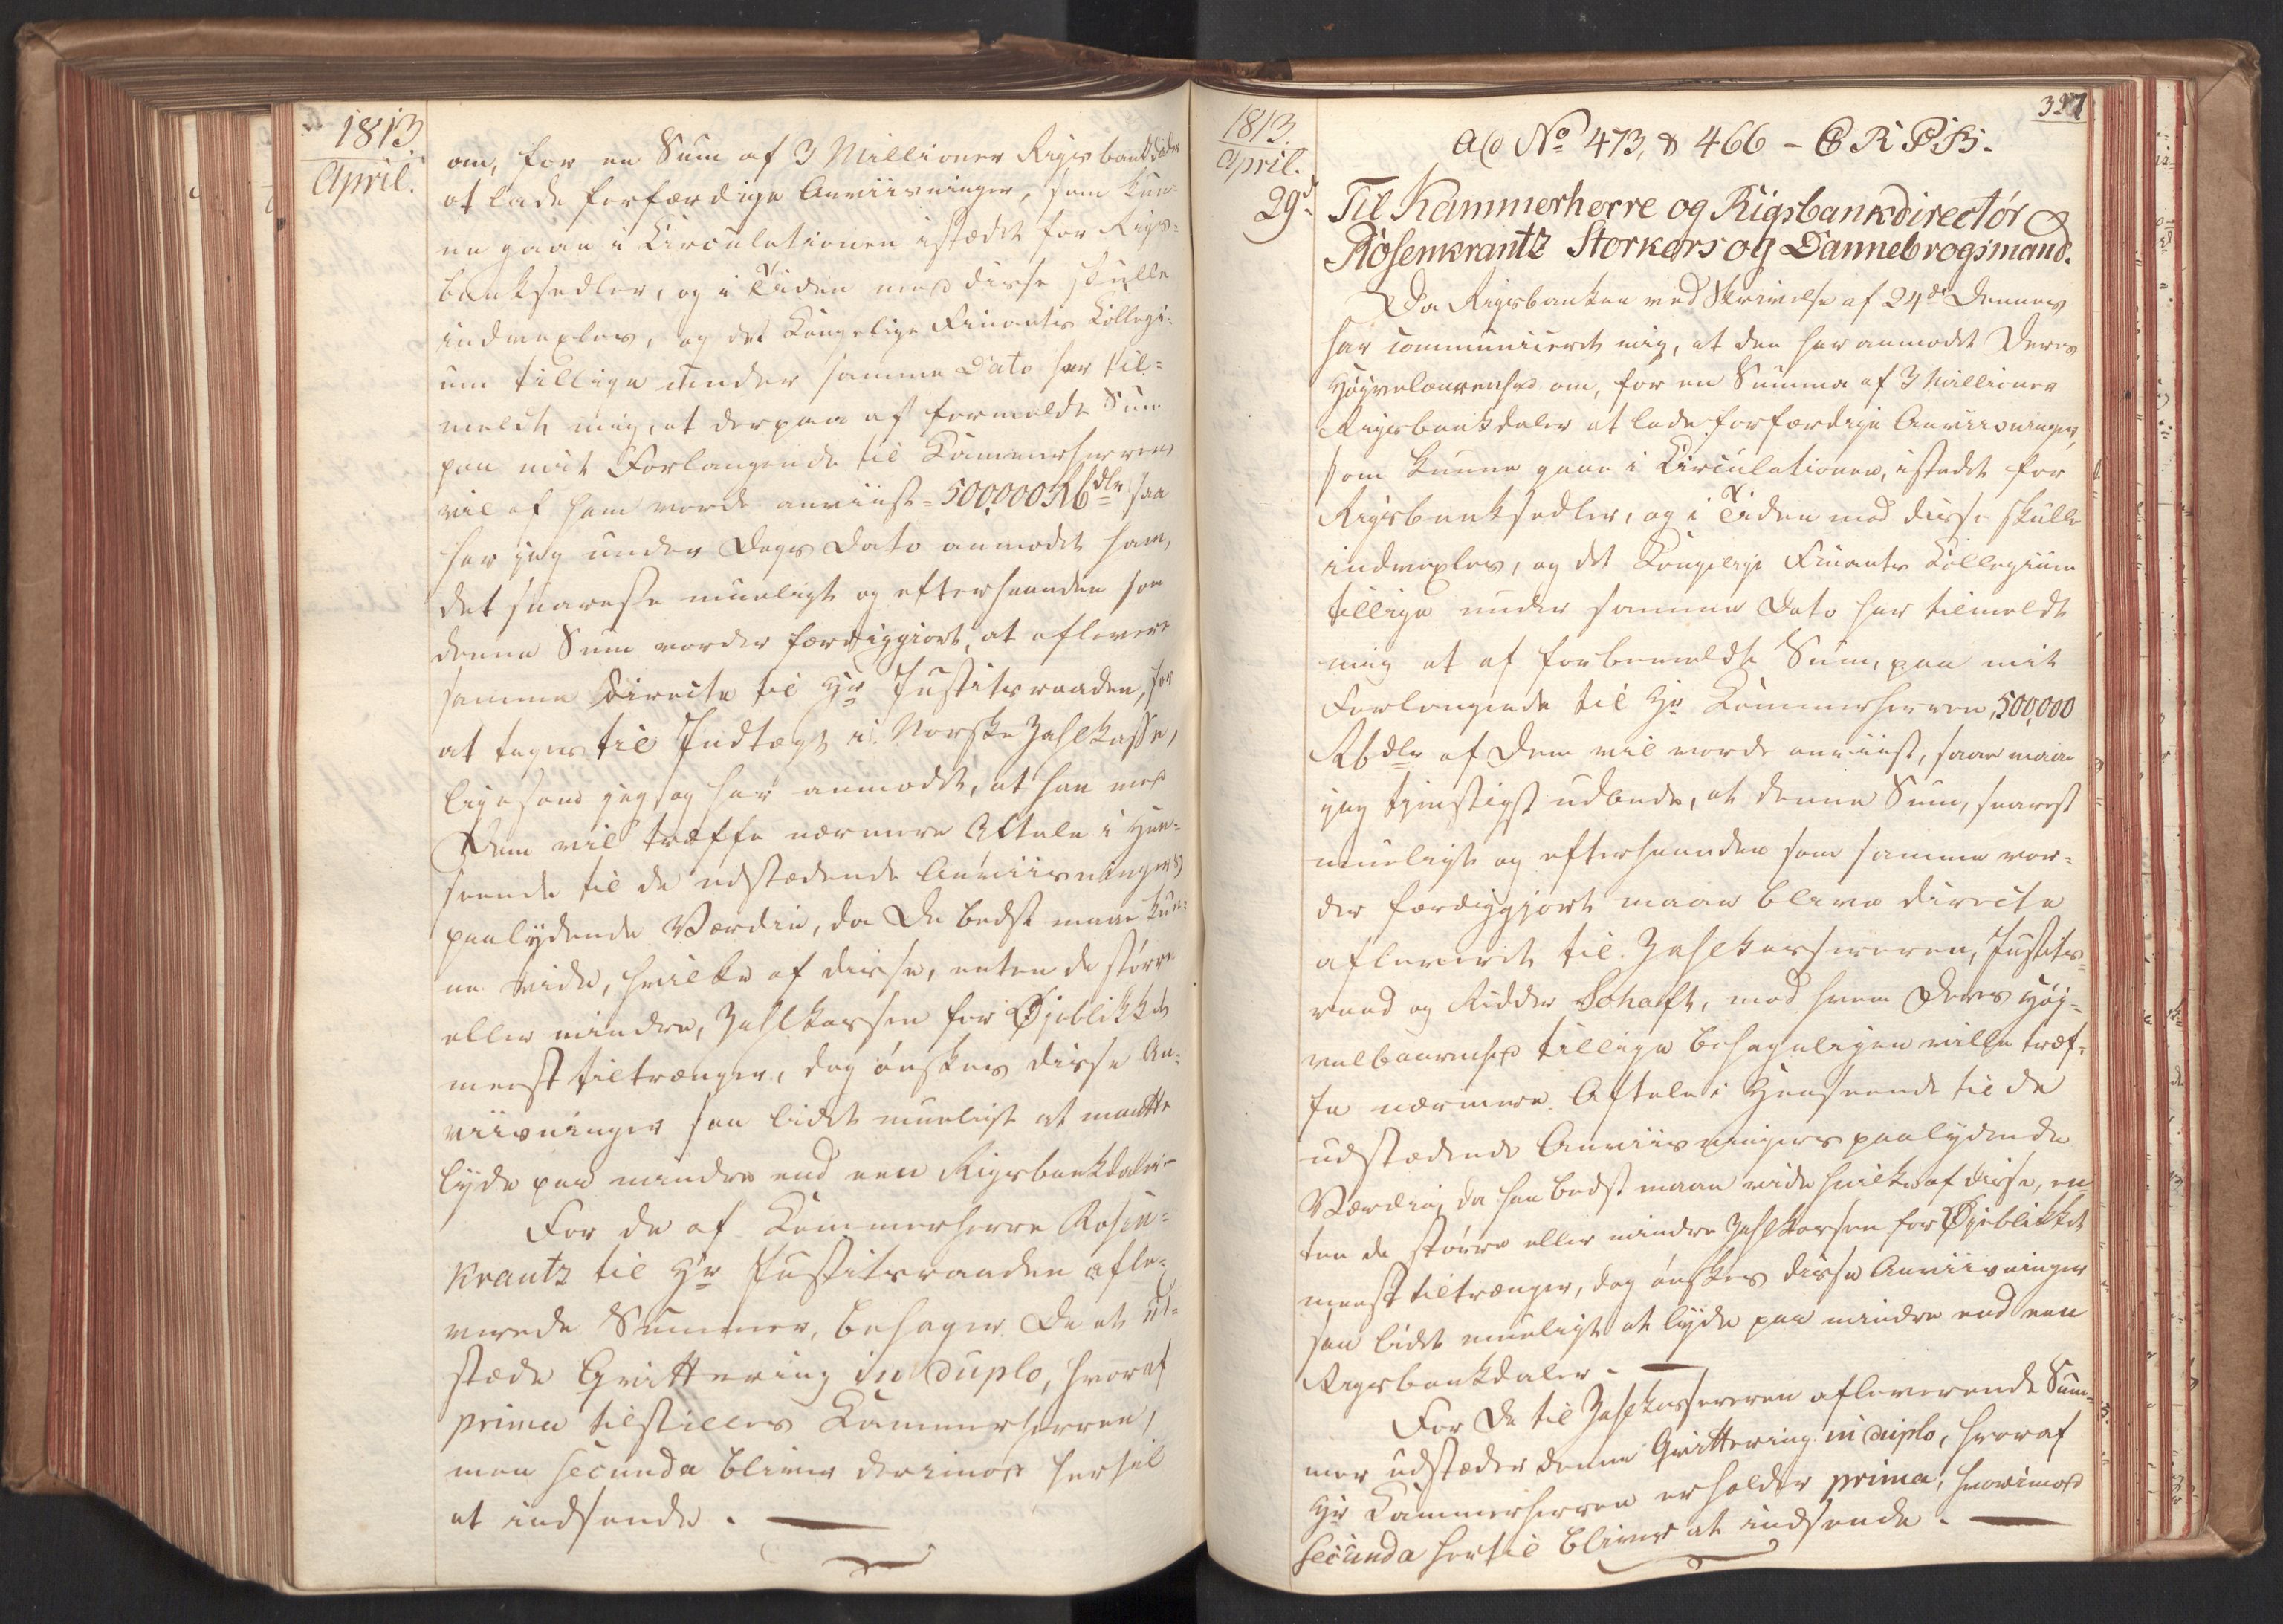 1813.
April.
om, for en Sum af 3 Millioner Rigsbankdaler
at lade forfærdige Anviisninger, som kun-
ne gaae i Circulationen istædet for Rigs-
banksedler, og i Tiden mod disse skulle
indvexles, og det Kongelige Finants Collegi-
um tillige under samme Dato har til-
meldt mig, at derpaa af formeldte Sum
paa mit Forlangende til Kammerherren
vil af ham vorde anviist - 500,000 Rbdlr saa
har jeg under Dags Dato anmodet ham,
det snareste mueligt og efterhaanden som
denne Sum vorder færdiggiort, at aflevere
samme directe til Hr Justitsraaden, for
at tages til Indtægt i Norske Zahlkasse,
ligesom jeg og har anmodet, at han med
Dem vil træffe nærmere Aftale i Hen-
seende til de udstædende Anviisningers
paalydende Værdie, da De bedst maae kun-
ne vide, hvilke af disse, enten de større
eller mindre, Zahlkassen for Øjeblikket
meest tiltrænger, dog ønskes disse An-
viisninger saa lidet mueligt at maatte
lyde paa mindre end een Rigsbankdaler -
For de af Kammerherre Rosen-
krantz til Hr Justitsraaden afle-
verede Summer, behager De at ud-
stæde Qvittering in duplo, hvoraf
prima tilstilles Kammerherren,
men secunda bliver derimod hertil
at indsende.
397
1813.
April.
29d.
Ad No 473, & 466 -
Til Kammerherre og Rigsbankdirectør
Rosenkrantz Storkors og Dannebrogsmand.
Da Rigsbanken ved Skrivelse af 24de Dennes
har communiceret mig, at den har anmodet Deres
Højvelbaarenhed om, for en Summa af 3 Millioner
Rigsbankdaler at lade forfærdige Anviisninger,
som kunne gaae i Circulationen, istædet for
Rigsbanksedler, og i Tiden mod disse skulle
indvexles, og det Kongelige Finants Collegium
tillige under samme Dato har tilmeldt
mig at af forbemeldte Sum, paa mit
Forlangende til Hr Kammerherren, 500,000
Rbdlr af Dem vil vorde anviist, saa maae
jeg tjenstligst udbede, at denne Sum, snarest
mueligt og efterhaanden som samme vor-
der færdiggjort maae blive directe
afleveret til Zahlkassereren, Justits-
raad og Ridder Schaft, med hvem Deres Høj-
velbaarenhed tillige behageligen ville træf-
fe nærmere Aftale i Henseende til de
udstædende Anviisningers paalydende
Værdie, da han bedst maae vide hvilke af disse, en-
ten de større eller mindre Zahlkassen for Øjeblikket
meest tiltrænger, dog ønskes disse Anviisninger
saa lidet mueligt at lyde paa mindre end een
Rigsbankdaler. -
For de til Zahlkassereren afleverende Sum-
mer udstæder denne Qvittering in duplo, hvoraf
Hr Kammerherren erholder prima, hvorimod
secunda hertil bliver at indsende. -